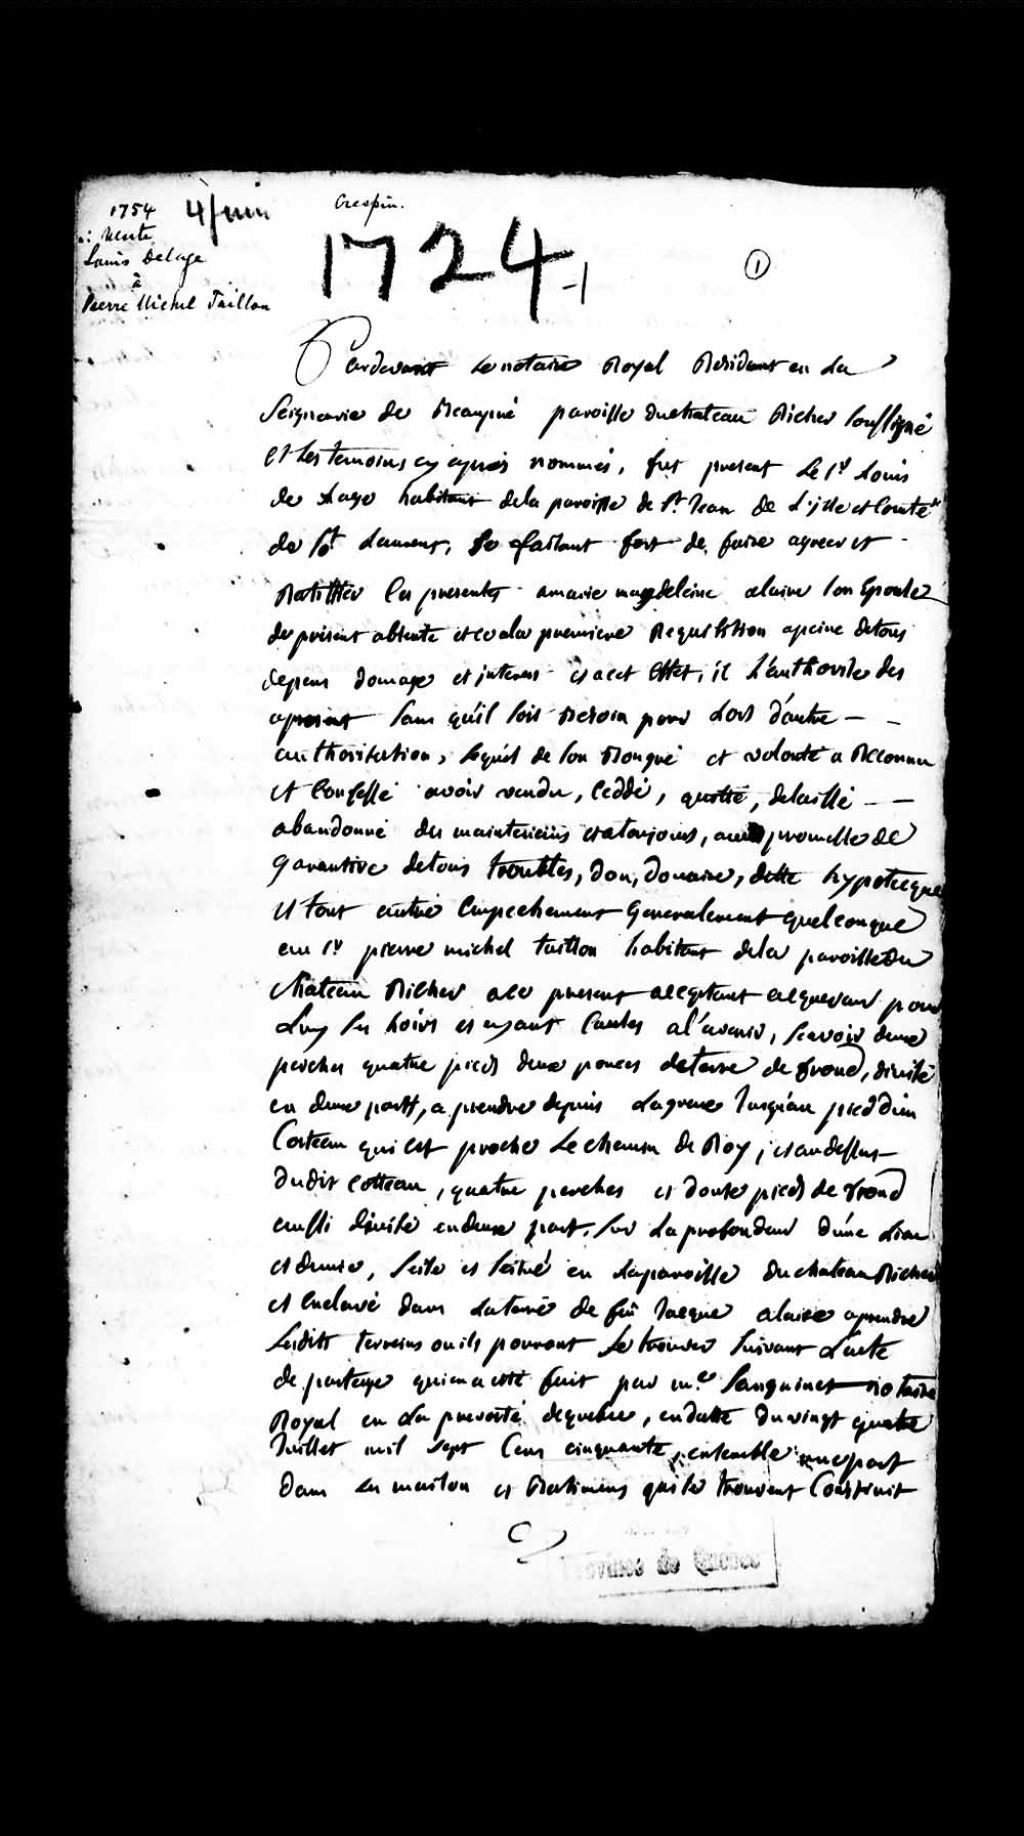 1754 4 Juin
Crespin.
: Vente
Louis Delage
à
Pierre Michel Taillon
1724
-1
1
Pardevant Le notaire Royal Residant en La
Seigneurie de Beaupré paroisse duchateau Richer soussigné
et Les temoins cy apres nommés, fut present Le Sr. Louis
de Lage habitant dela paroisse de St. Jean de L'isle et Comté
de St Laurent, Se faisant fort de faire agreer et
Ratiffier les presentes amarie magdeleine alaire son Epouse
de présent absente et ala premiere Requisition apeine detous
depens domage et interest et acet Effet, il L'authorise des
apresent sans qu'il soit Besoin pour Lors d'autre - -
authorisation, Lequel de son Bongré et volonté a Reconnu
et Confessé avoir vendu, Ceddé, quitté, delaissé - -
abandonné des maintenant et atoujours, avec promesse de
garantire detous troubles, don, douaire, dette hypotecque
et tout autre Empechement Generalement quelconque
au Sr pierre michel taillon habitant dela paroisse du
Chateau Richer ace present acceptant acquereur pour
Luy Ses hoirs et ayant Causes al'avenir, Scavoir deux
perches quatre pieds deux pouces deterre de frond, divisé
en deux part, a prendre depuis Lagreve Jusqu'au pied d'un
Costeau qui est proche Le chemin de Roy, et audessus
dudit Cotteau, quatre perches et douse pieds de frond
aussi divisé endeux part. Sur La profondeur d'une Lieu
et demie, Sise et Scitué en Laparoisse duchateau Richer
et Enclavé dans Laterre de feu Jacque alaire aprendre
Lesdits terreins ou ils pourront Se trouver Suivant L'acte
de partage qui en a esté fait par me. Sanguinet notaire
Royal en La prevosté dequebec, endatte du vingt quatre
Juillet mil sept Cens cinquante, ensemble unepart
dans Les maison et Batimens qui se trouvent Construit
Province de Québec